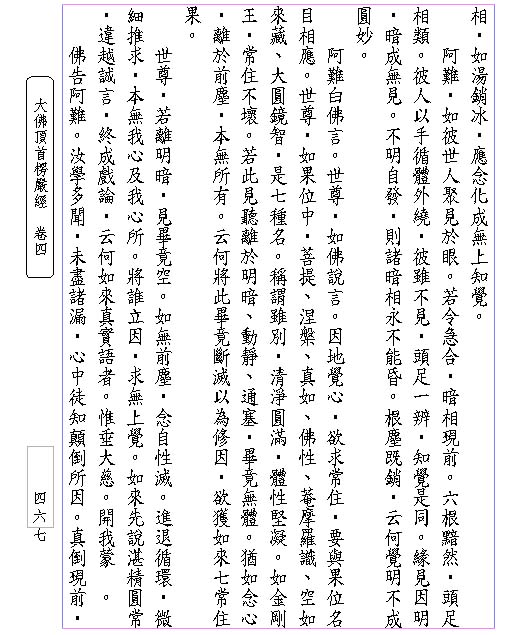 相，如湯銷冰，應念化成無上知覺。
阿難，如彼世人聚見於眼。若令急合，暗相現前。六根黯然，頭足
相類。彼人以手循體外繞，彼雖不見，頭足一辨，知覺是同。緣見因明
，暗成無見。不明自發，則諸暗相永不能昏。根塵既銷，云何覺明不成
圓妙。
阿難白佛言。世尊，如佛說言。因地覺心，欲求常住，要與果位名
目相應。世尊，如果位中，菩提、涅槃、真如、佛性、菴摩羅識、空如
來藏、大圓鏡智，是七種名。稱謂雖別，清淨圓滿，體性堅凝。如金剛
王，常住不壞。若此見聽離於明暗、動靜、通塞，畢竟無體。猶如念心
，離於前塵，本無所有。云何將此畢竟斷滅以為修因，欲獲如來七常住
果。
世尊，若離明暗，見畢竟空。如無前塵，念自性滅。進退循環，微
細推求，本無我心及我心所。將誰立因，求無上覺。如來先說湛精圓常
，違越誠言，終成戲論，云何如來真實語者。惟垂大慈。開我蒙　。
佛告阿難。汝學多聞，未盡諸漏，心中徒知顛倒所因。真倒現前，
大佛頂首楞嚴經　卷四
四六七